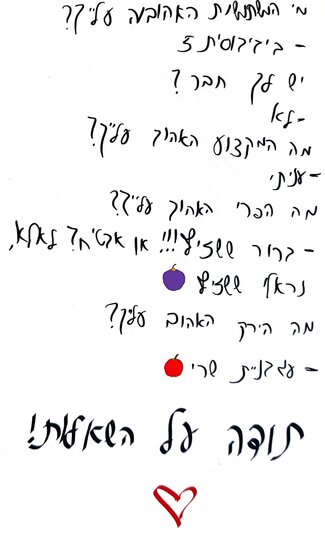 מי המשתמשת האהובה עלייך?
- ביביסית 5
יש לך חבר?
- לא
מה המקצוע האהוב עלייך?
- עניתי
מה הפרי האהוב עלייך?
- ברור ששזיף!!! או אבטיח? לאלא,
נראלי ששזיף
מה הירק האהוב עליך?
- עגבניית שרי
תודה על השאלות!